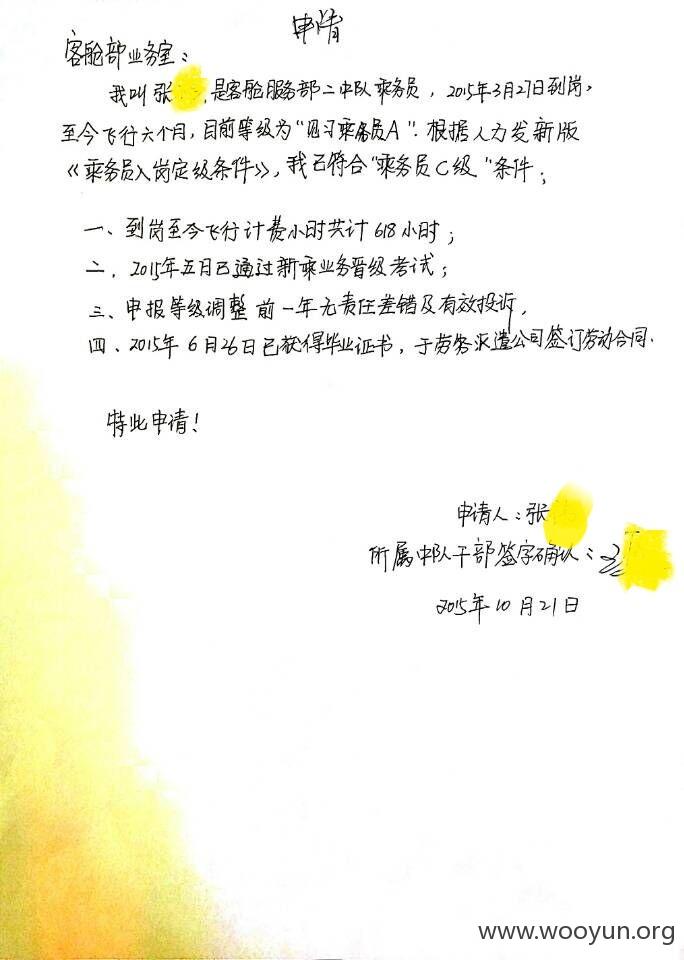 申请
客舱部业务室：
我叫张 是客舱服务部二中队乘务员，2015年3月27日到岗，
至今飞行六个月，目前等级为“见习乘务员A”。根据人力发新版
《乘务员入岗定级条件》，我已符合“乘务员C级”条件；
一、到岗至今飞行计费小时共计618小时；
二、2015年五月已通过新乘业务晋级考试；
三、申报等级调整前一年无责任差错及有效投诉。
四、2015年6月26日已获得毕业证书，于劳务派遣公司签订劳动合同.
特此申请！
申请人：张
所属中队干部签字确认：
2015年10月21日
www.wooyun.org